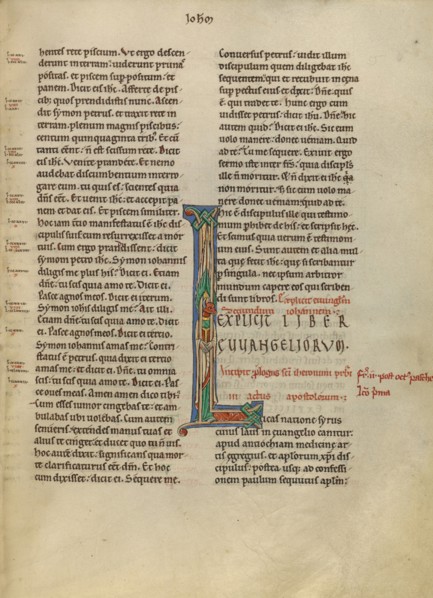 ioh̄s
hentes rete piscium. Ut ergo descen
derunt in terram: uiderunt prunas
positas. et piscem suppositum: et
panem. Dicit eis ihc. Afferte de pis
cib; quos prendidistis nunc. Ascen
dit symon petrus. et traxit rete in
terram. plenum magnis piscibus
centum quinquaginta trib;. Et cū
tanti eēnt: n̄ est scissum rete. Dicit
eis ihc. Venite prandete. Et nemo
audebat discumbentium interro
gare eum. tu quis es. scientes quia
dn̄s est. Et uenit ihc. et accepit pa
nem et dat eis. Et piscem similiter.
Hoc iam tertio manifestatus ē ihc dis
cipulis suis cum resurrexisset a mor
tuis. Cum ergo prandissent: dicit
symoni petro ihc. Symon iohannis
diligis me plus his? Dicit ei. Etiam
dn̄e. tu scis quia amo te. Dicit ei.
Pasce agnos meos. Dicit ei iterum.
Symon iohis diligis me? Ait illi.
Etiam dn̄e. tu scis quia amo te. Dicit
ei. Pasce agnos meos. Dicit ei tertio.
Symon iohannis amas me? Contri
status ē petrus. quia dixit ei tertio
amas me. et dixit ei. Dn̄e. tu omnia
scis. tu scis quia amo te. Dicit ei. Pas
ce oues meas. Amen amen dico tibi:
cum esses iunior cingebas te. et am
bulabas ubi uolebas. Cum autem
senueris: extendes manus tuas et
alius te cinget. et ducet quo tu n̄ uis.
Hoc autē dixit: significans qua mor
te clarificaturus eēt dm̄. Et hoc
cum dixisset: dicit ei. Sequere me.
Conuersus petrus: uidit illum
discipulum quem diligebat ihc
sequentem. qui et recubuit in cena
sup pectus eius et dixit: Dn̄e. quis
ē qui tradet te? Hunc ergo cum
uidisset petrus: dicit ihu. Dn̄e. hic
autem quid? Dicit ei ihc. Sic eum
uolo manere: donec ueniam. Quid
ad te? Tu me sequere. Exiuit ergo
sermo iste inter frs̄. quia discipls̄
ille n̄ moritur. Et n̄ dixit ei ihc quia
non moritur. Sed sic eum uolo ma
nere: donec ueniam. quid ad te.
Hic ē discipulus ille qui testimo
nium phibet de his. et scripsit hec.
Et scimus quia uerum ē testimoni
um eius. Sunt autem et alia mul
ta que fecit ihc. que si scribantur
p singula. nec ipsum arbitror
mundum capere eos qui scriben
di sunt libros. Explicit euuanglm̄
secundum iohannem.
EXPLICIT LIBER
EUUANGELIORUM.
Incipit plogus sc̄i iheronimi pr̄bi
in actus apostolorum.
Lucas natione syrus
cuius laus in euuangelio canitur.
apud antiochiam medicine ar
tis egregius. et aplorum xpi di
scipulus: postea usq; ad confessi
onem paulum sequutus aplm̄: